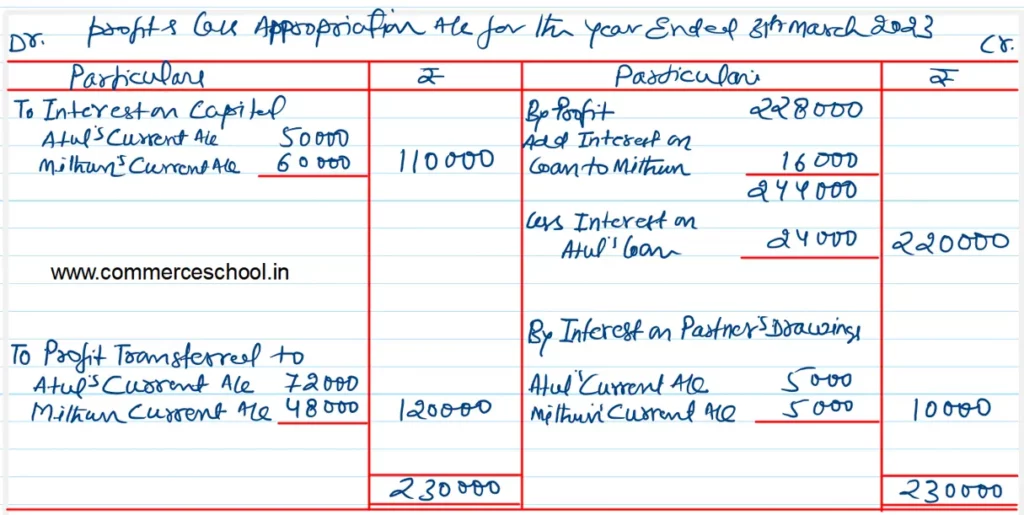 Dr. Profit & Loss Appropriation A/c for the Year Ended 31th March 2023 Cr.
Particulars ₹ Particulars ₹
To Interest on Capital
Atul's Current A/c 50000
Mithun's Current A/c 60000 110000
By Profit 228000
Add Interest on
Loan to Mithun 16000
244000
Less Interest on
Atul's Loan 24000 220000
www.commerceschool.in
By Interest on Partner's Drawings
To Profit Transferred to
Atul's Current A/c 72000
Mithun Current A/c 48000 120000
Atul' Current A/c 5000
Mithun' Current A/c 5000 10000
230000 230000